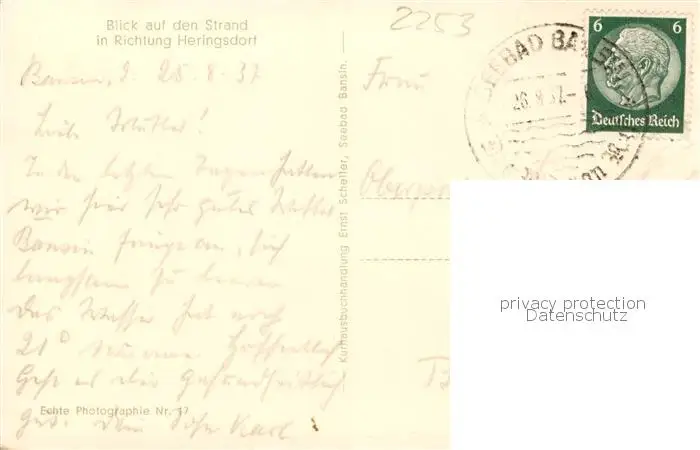 Blick auf den Strand
in Richtung Heringsdorf
2253
Bansin, d. 25.8.37
Liebe Mutter!
In den letzten Tagen hatten
wir hier sehr gutes Wetter
Bansin fängt an, sich
langsam zu leeren
Das Wasser hat noch
21°
Hoffentlich
Geht es dir gesundheitlich
gut. Dein Sohn Karl
Echte Photographie Nr. 17
Kurhausbuchhandlung Ernst Scheller, Seebad Bansin.
Frau
SEEBAD BANSIN
26.8.37
6 6
Deutsches Reich
privacy protection
Datenschutz